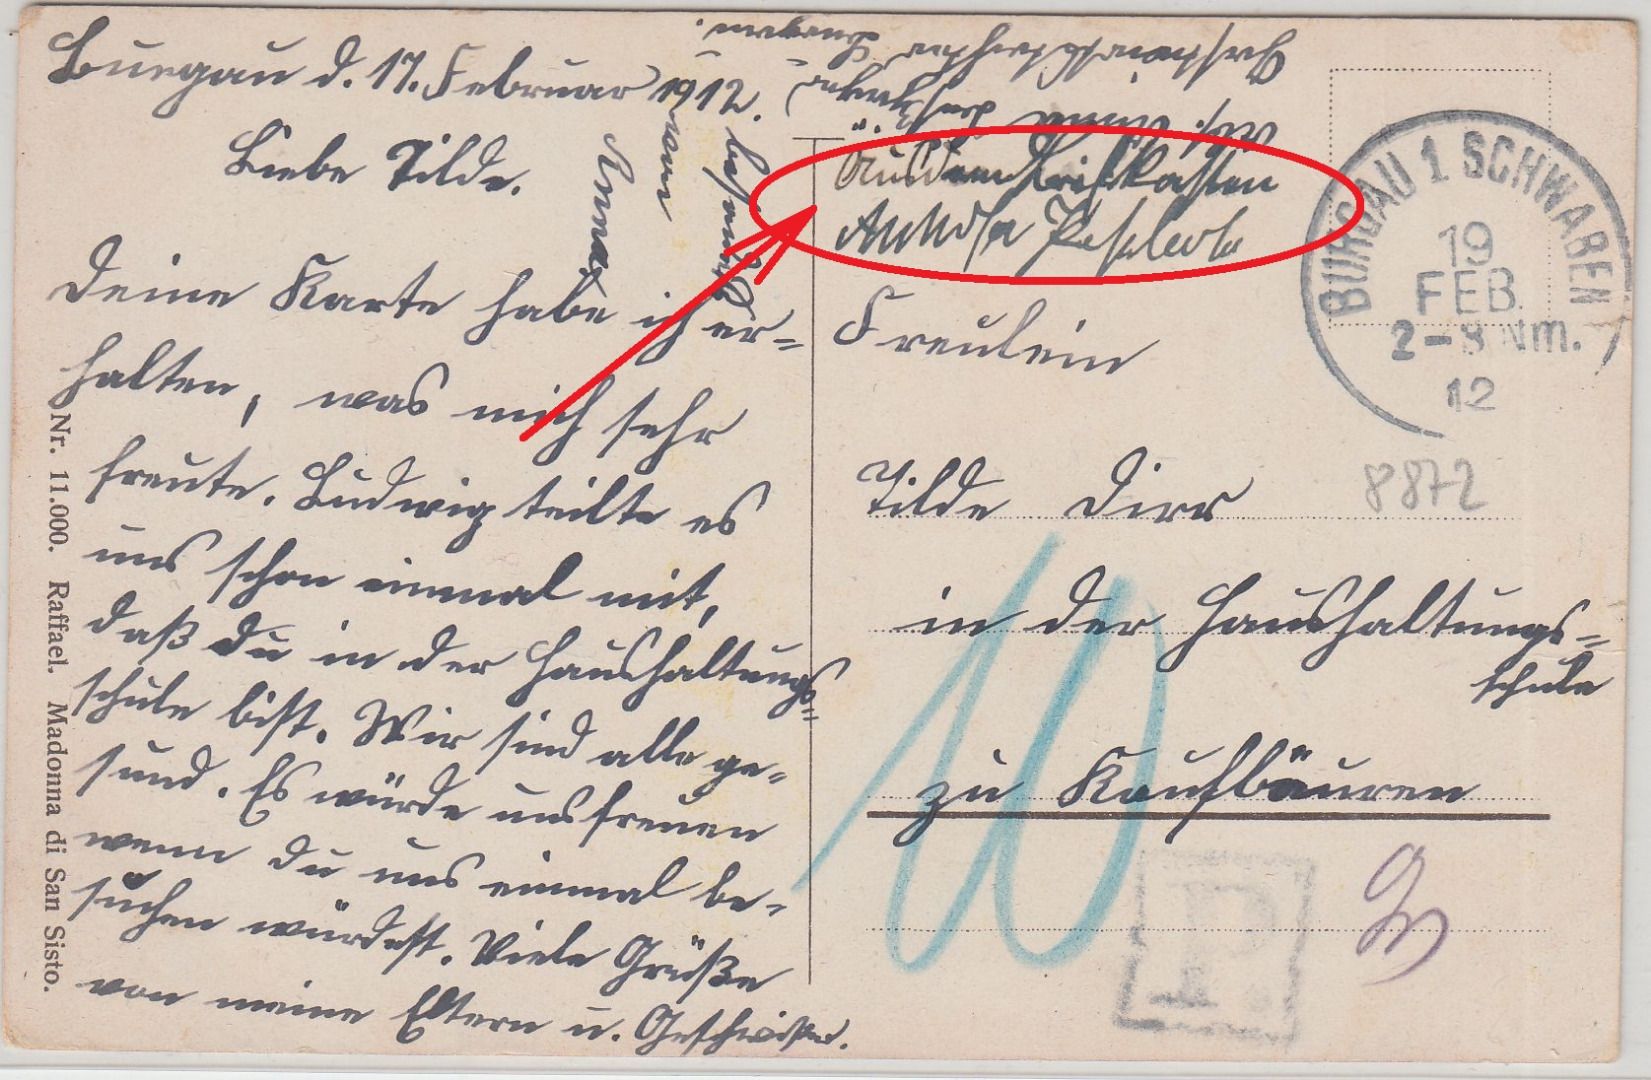 Burgau d. 17. Februar 1912.
Liebe Tilde.
Deine Karte habe ich er-
halten, was mich sehr
freute. Ludwig teilte es
uns schon einmal mit,
daß du in der Haushaltungs-
schule bist. Wir sind alle ge-
sund. Es würde uns freuen
wenn du uns einmal be-
suchen würdest. Viele Grüße
von meine Eltern u. Geschwister.
Aus dem Briefkasten
Fräulein
Tilde Dirr
in der Haushaltungs-
schule
zu Kaufbäuren
BURGAU 1 SCHWABEN
19
FEB.
2-3 Nm.
12
8872
10
P.
Nr. 11.000. Raffael. Madonna di San Sisto.